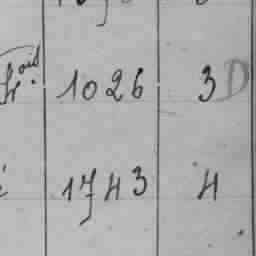 fr.ois 1026 3 D
1743 4